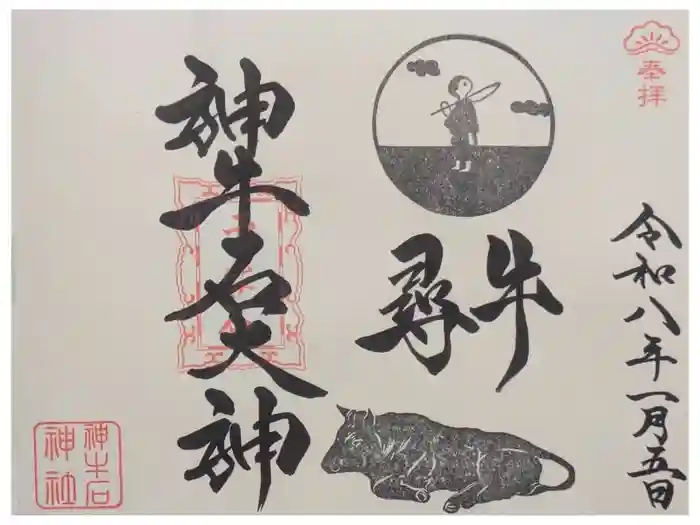 奉拝
令和八年一月五日
尋牛
神牛石大神
神牛石
神社